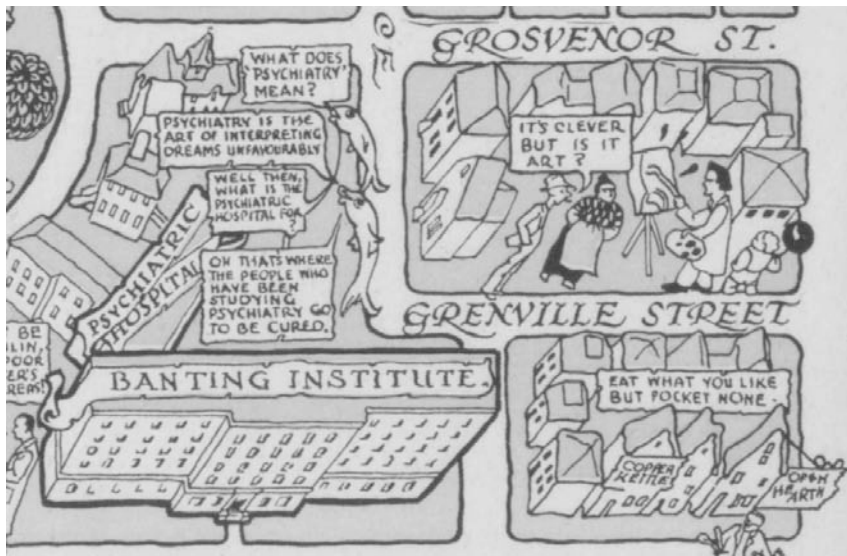 GROSVENOR ST.
"WHAT DOES
'PSYCHIATRY'
MEAN?
PSYCHIATRY IS THE
ART OF INTERPRETING
DREAMS UNFAVOURABLY
WELL THEN,
WHAT IS THE
PSYCHIATRIC
HOSPITAL FOR
?
OH THAT'S WHERE
THE PEOPLE WHO
HAVE BEEN
STUDYING
PSYCHIATRY GO
TO BE CURED.
PSYCHIATRIC
HOSPITAL
IT'S CLEVER
BUT IS IT
ART?
GRENVILLE STREET
BE
LIN,
POOR
ER'S
REAS!
BANTING INSTITUTE.
EAT WHAT YOU LIKE
BUT POCKET NONE -
COPPER
KETTLE
OPEN
HEARTH